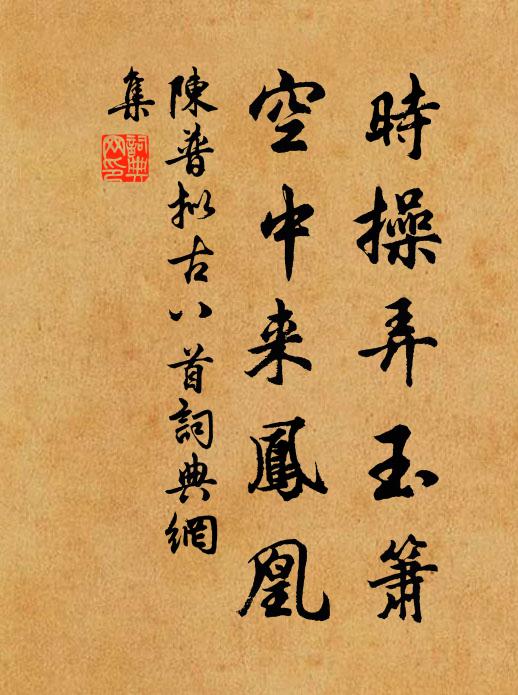 時操弄玉簫
空中来鳳凰
陳普拟古八首詞典網
集
詞典
网印